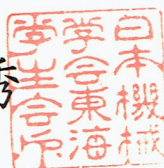 秀
日本機械
学会東海
学生会印